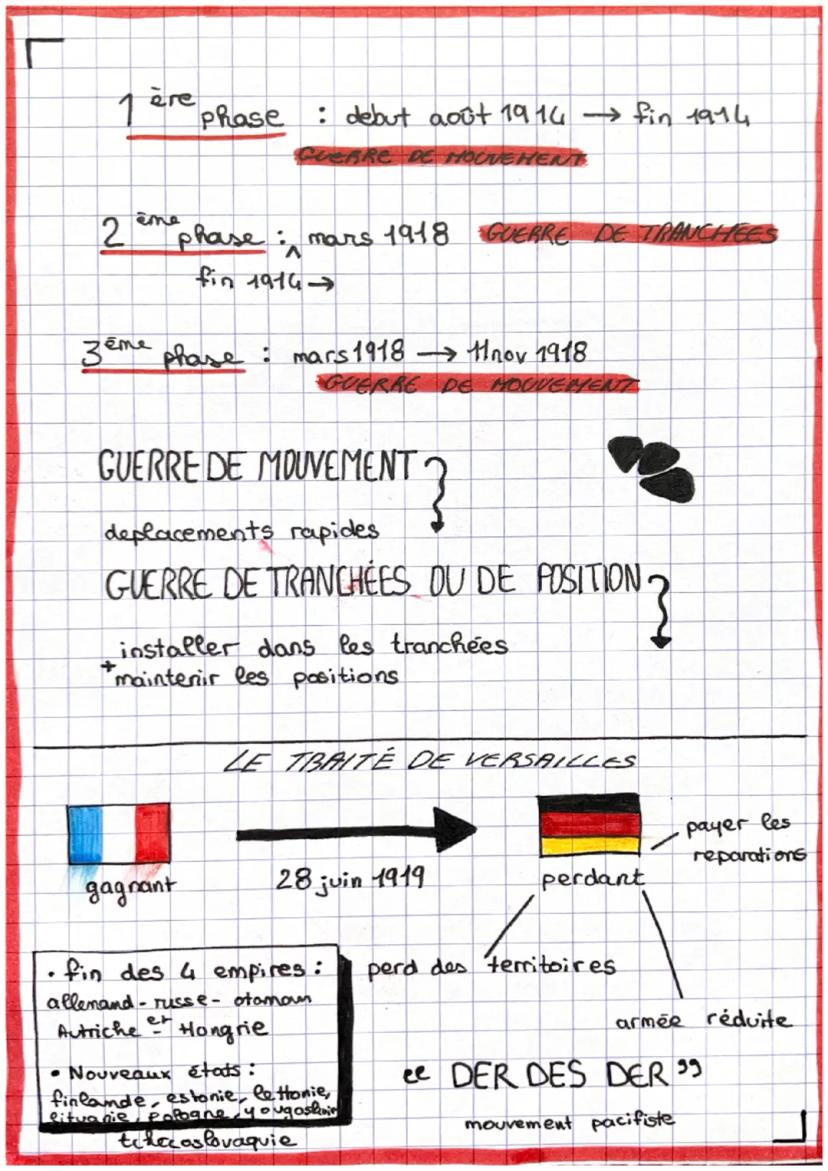 1ère phase : debut août 1914 → fin 1914
GUERRE DE MOUVEMENT
2ème phase : mars 1918 GUERRE DE TRANCHÉES
^ fin 1914 →
3ème phase : mars 1918 → 11 nov 1918
GUERRE DE MOUVEMENT
GUERRE DE MOUVEMENT
deplacements rapides
GUERRE DE TRANCHÉES OU DE POSITION
installer dans les tranchées
+ maintenir les positions
LE TRAITÉ DE VERSAILLES
gagnant
28 juin 1919
perdant
payer les
reparations
perd des territoires
armée réduite
• fin des 4 empires :
allemand - russe - otoman
Autriche et Hongrie
• Nouveaux états :
finlande, estonie, lettonie,
lituanie, pologne, yougoslavie
tchecoslovaquie
“ DER DES DER ”
mouvement pacifiste